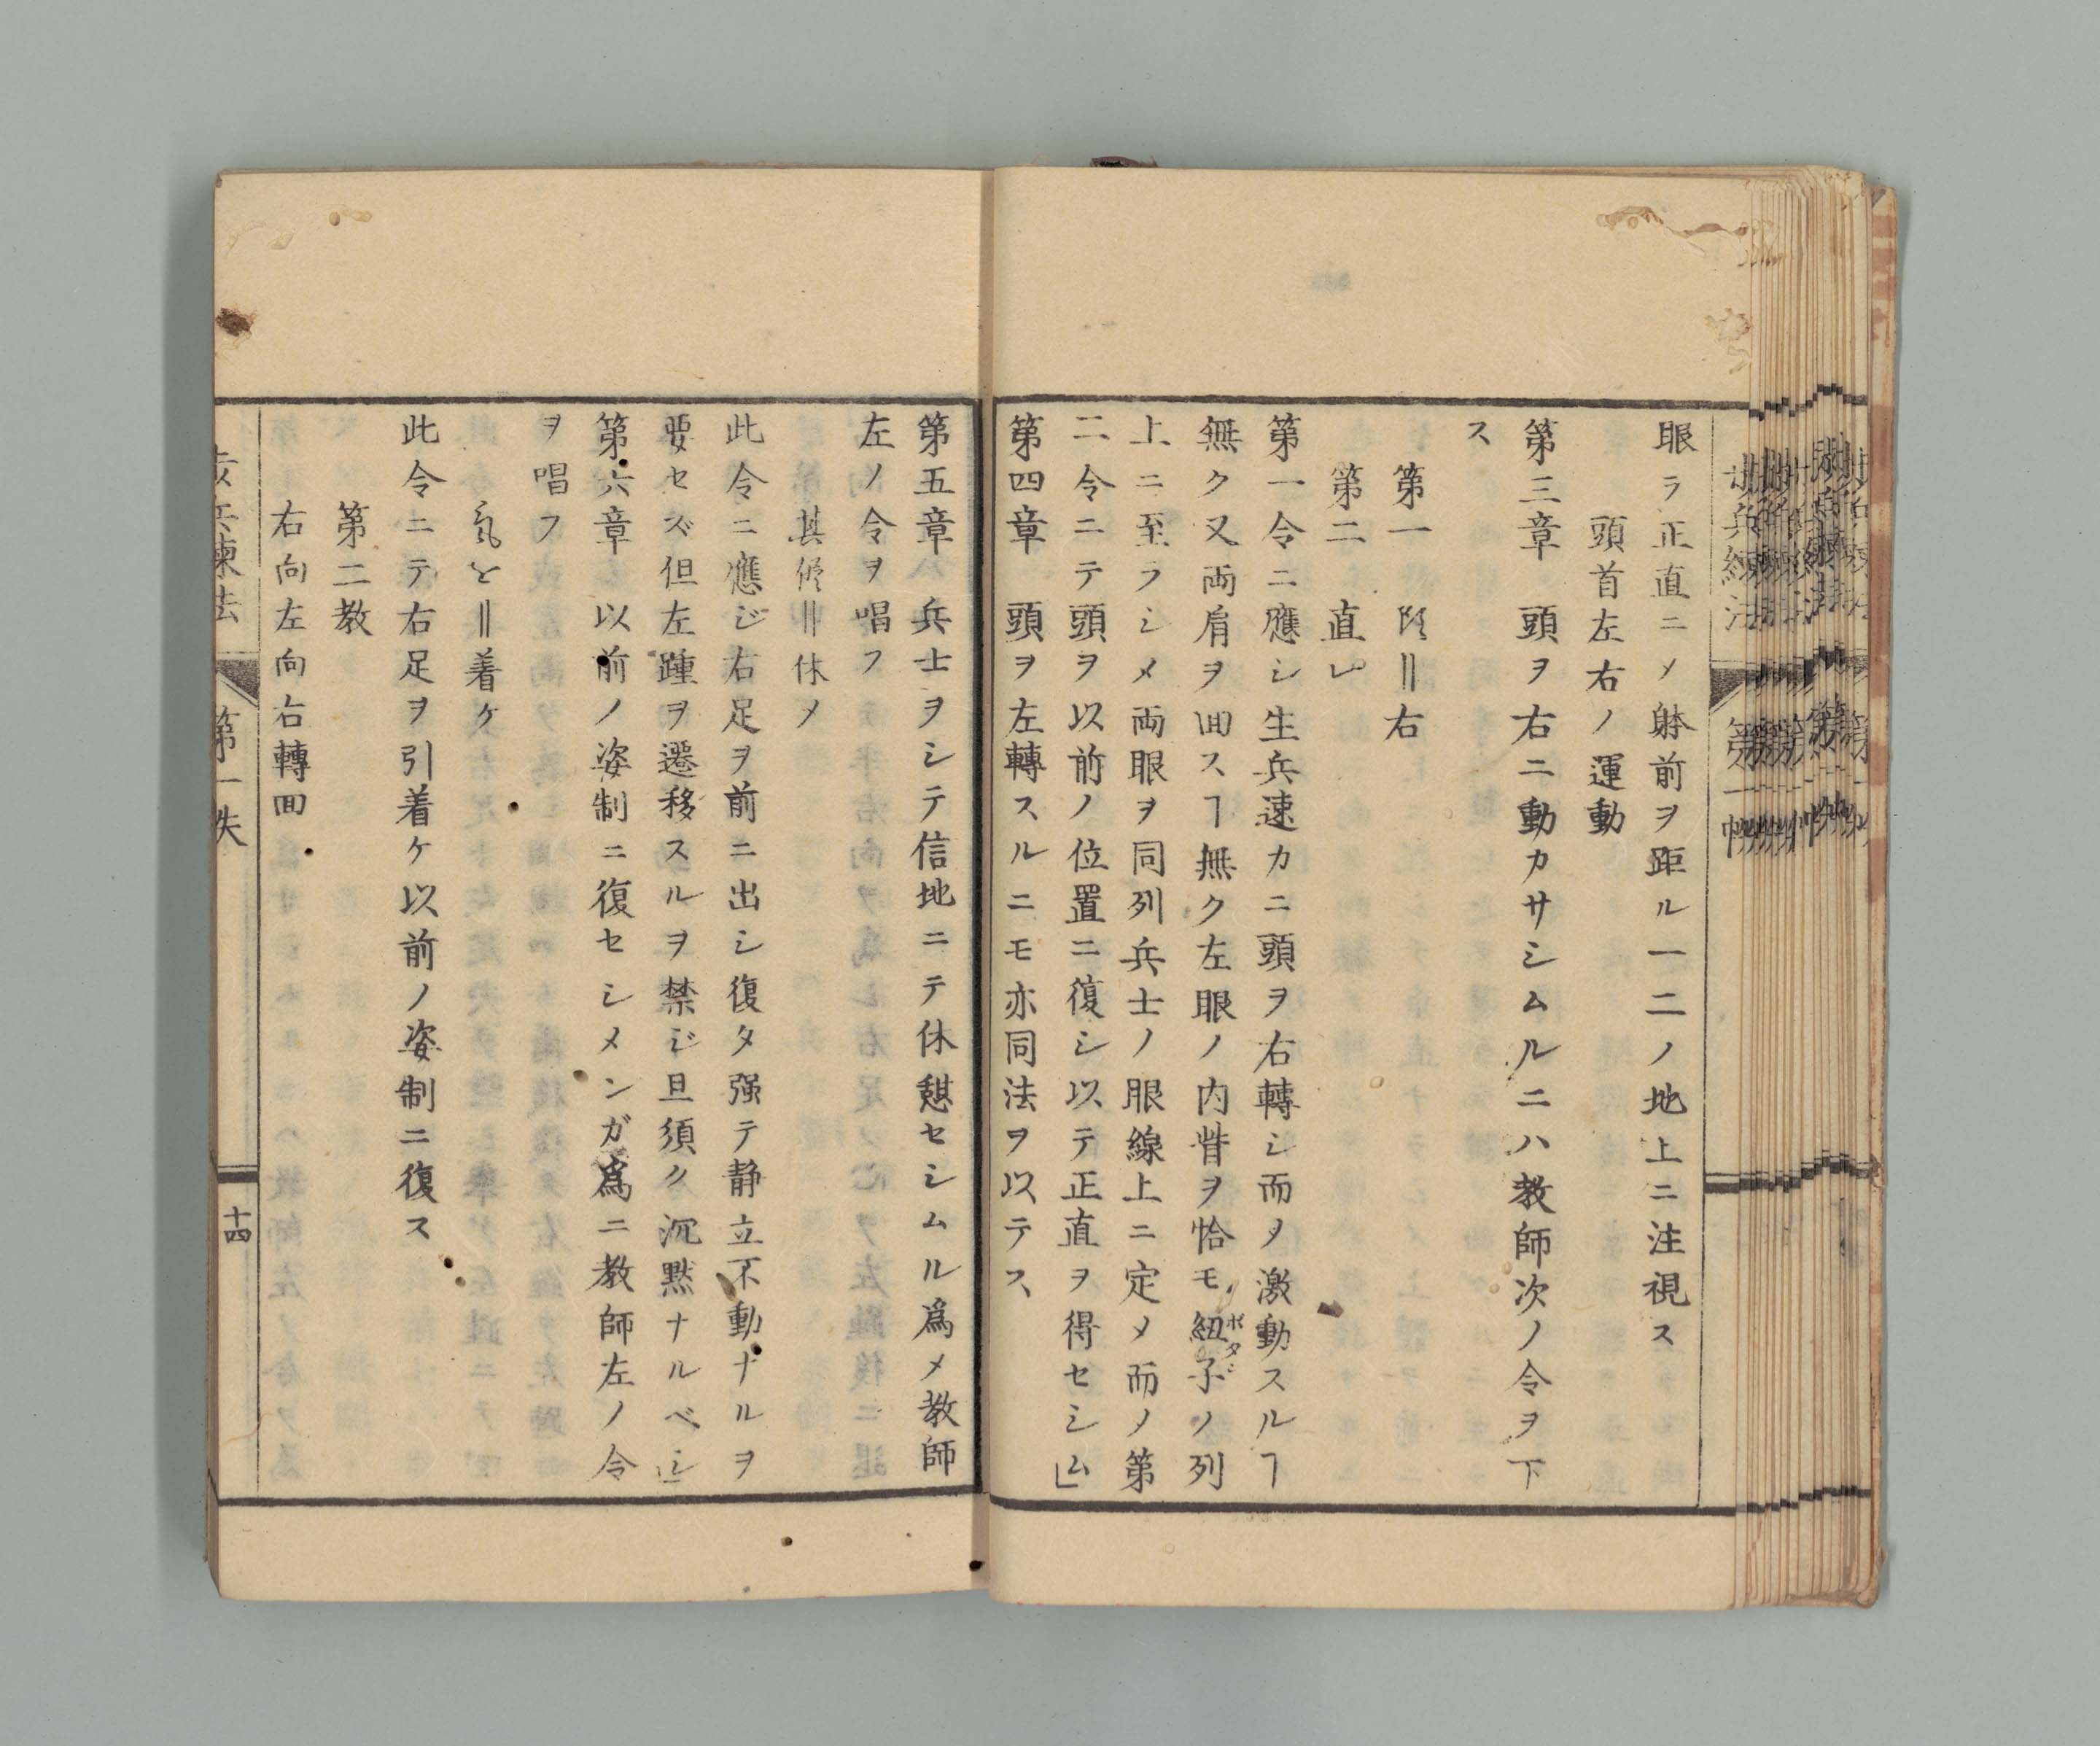 眼ラ正直ニメ躰前ヲ距ル一二ノ地上ニ注視ス
頭首左右ノ運動
第三章 頭ヲ右ニ動カサシムルニハ教師次ノ令ヲ下
ス
第一 〢右
第二 直レ
第一令ニ應シ生兵速カニ頭ヲ右轉シ而メ激動スルヿ
無ク又両肩ヲ囬スヿ無ク左眼ノ内眥ヲ恰モ紐子ノ列
ボタン
上ニ至ラシメ両眼ヲ同列兵士ノ眼線上ニ定メ而メ第
二令ニテ頭ヲ以前ノ位置ニ復シ以テ正直ヲ得セシム」
第四章 頭ヲ左轉スルニモ亦同法ヲ以テス
第五章 兵士ヲシテ信地ニテ休憩セシムル爲メ教師
左ノ令ヲ唱フ
其侭〢休メ
此令ニ應ジ右足ヲ前ニ出シ復タ强テ静立不動ナルヲ
要セズ但左踵ヲ遷移スルヲ禁ジ且須ク沉黙ナルベシ」
第六章 以前ノ姿制ニ復セシメンガ爲ニ教師左ノ令
ヲ唱フ
氣を〢着ケ
此令ニテ右足ヲ引着ケ以前ノ姿制ニ復ス
第二教
右向左向右轉囬
兵練法 第一 十四